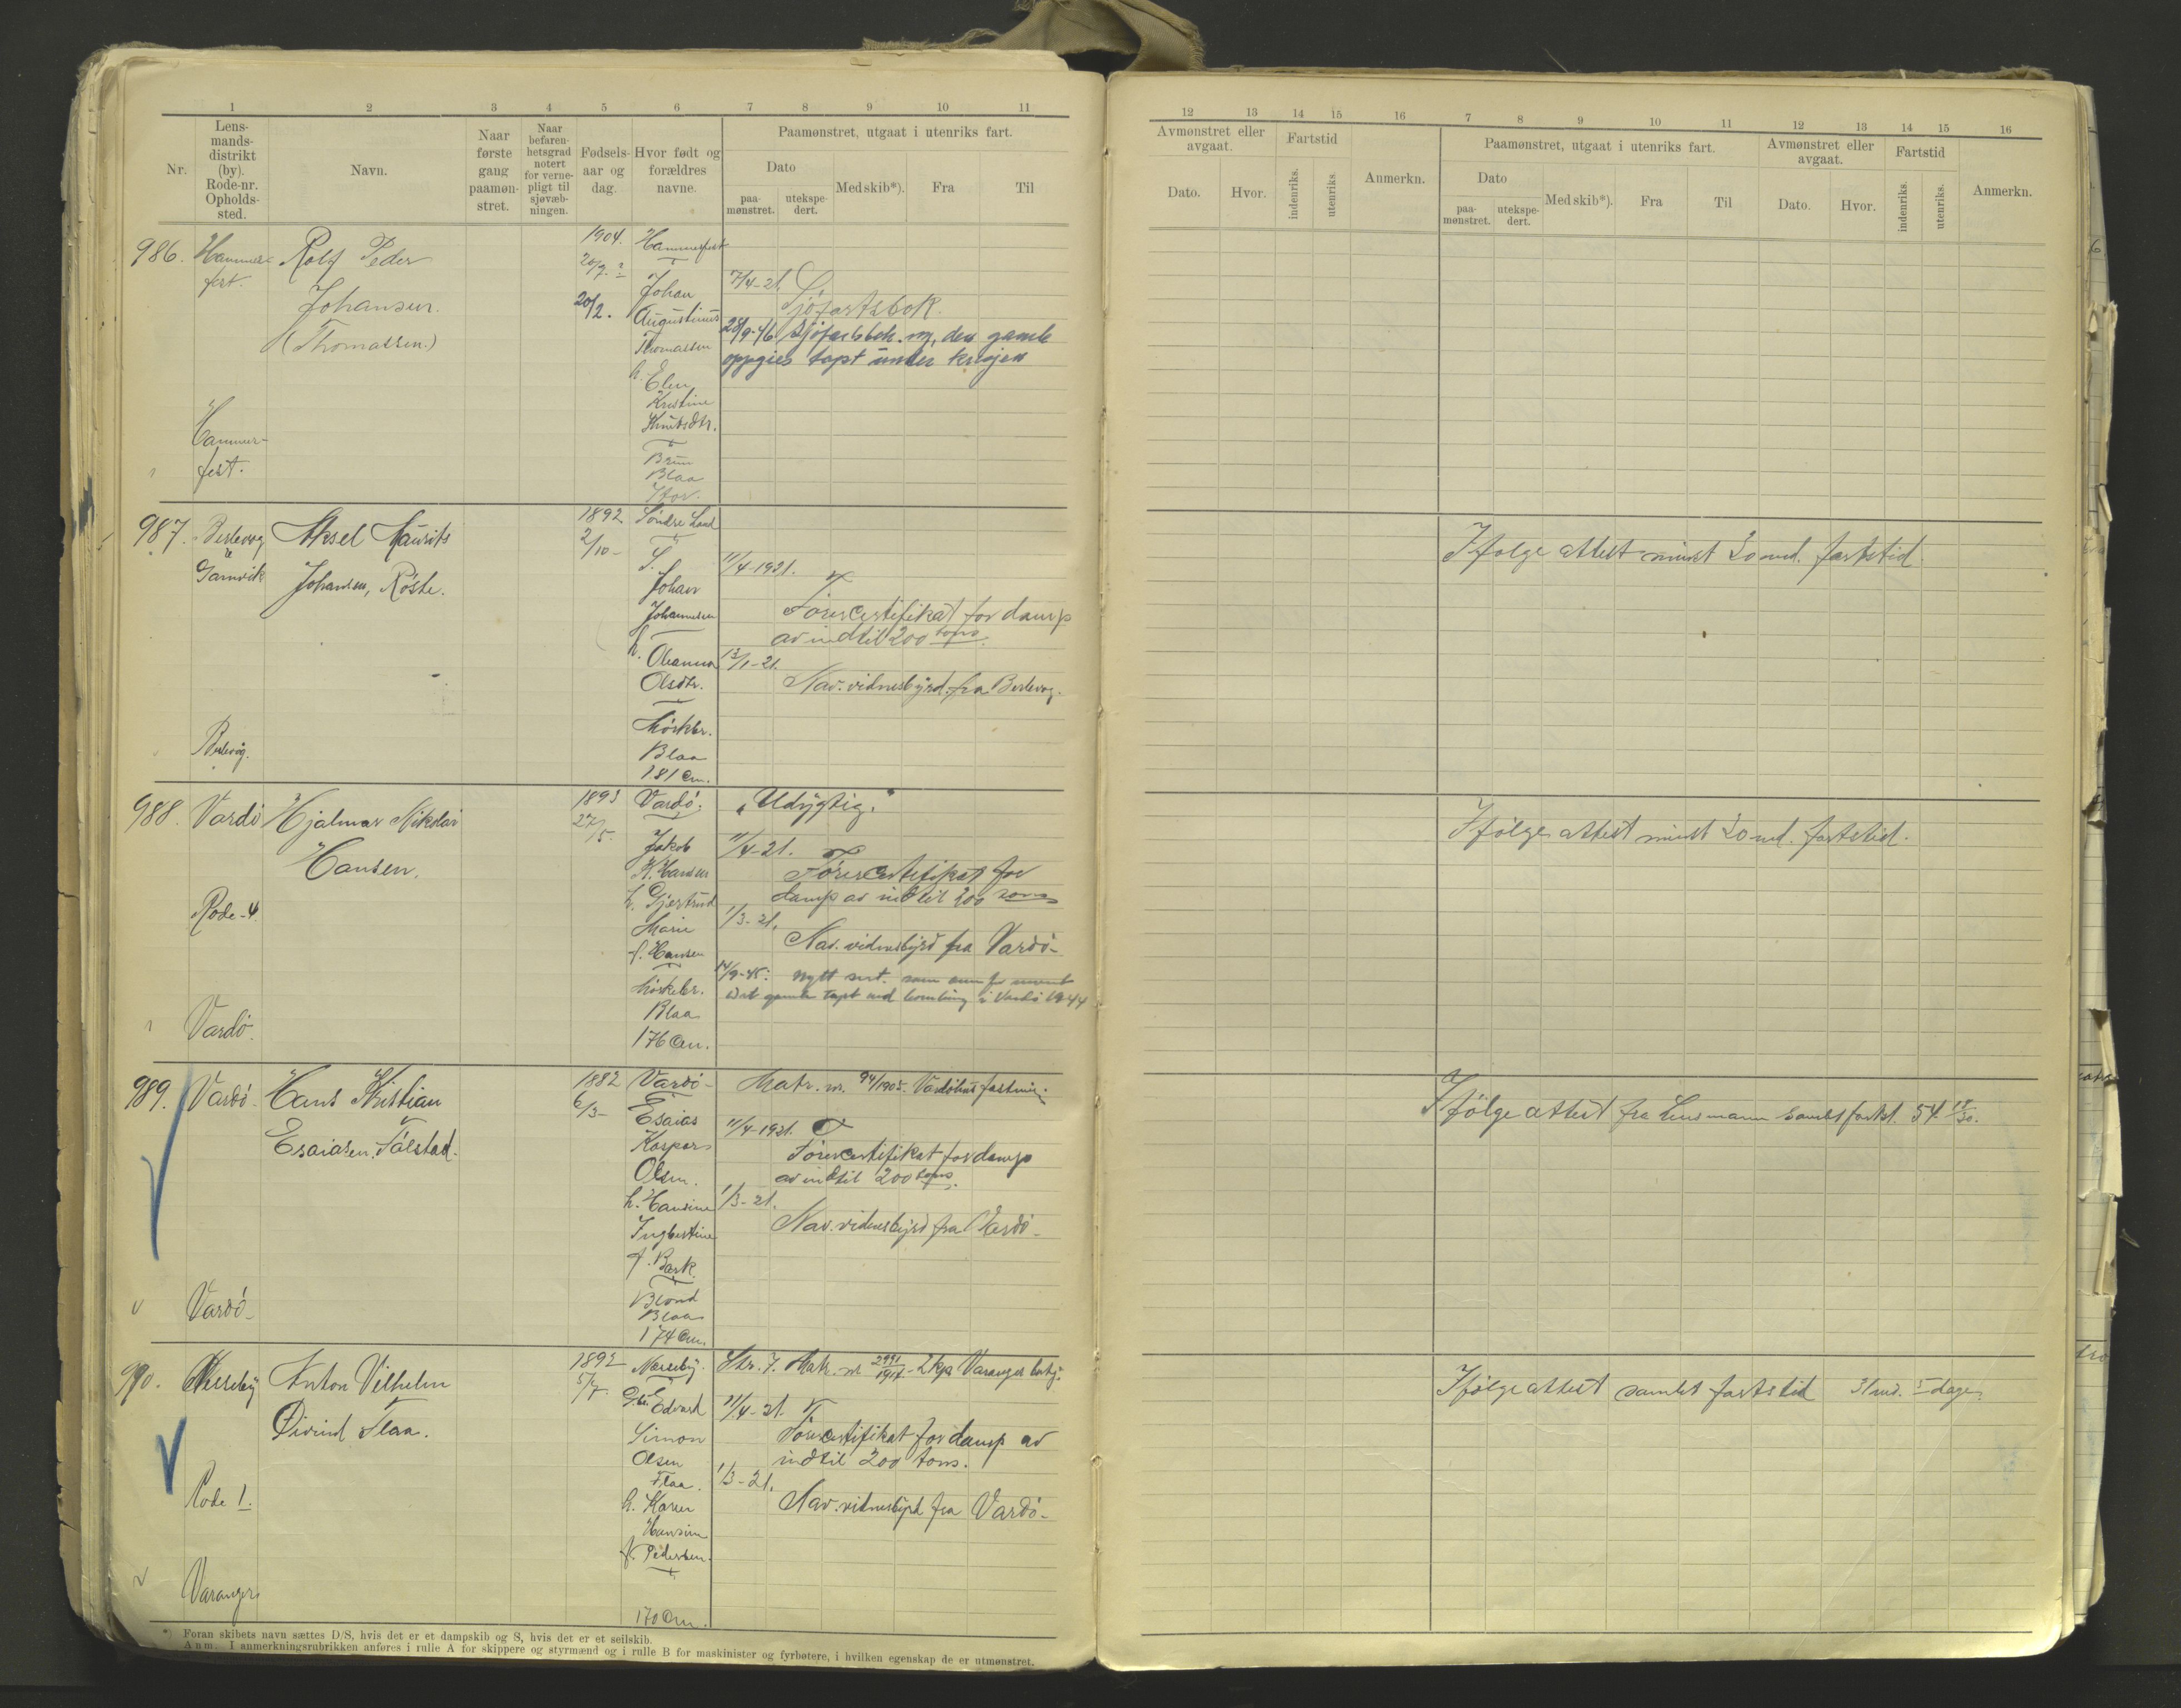 1 2 3 4 5 6 7 8 9 10 11
Nr.
Lens-
mands-
distrikt
(by).
Rode-nr.
Opholds-
sted.
Navn.
Naar
første
gang
paamøn-
stret.
Naar
befaren-
hetsgrad
notert
for verne-
pligt til
sjøvæb-
ningen.
Fødsels-
aar og
dag.
Hvor født og
forældres
navne.
Paamønstret, utgaat i utenriks fart.
Dato
paa-
mønstret.
utekspe-
dert.
Med skib*).
Fra
Til
986.
Hammer-
fest.
Hammer-
fest.
Rolf Peder
Johansen.
(Thomassen.)
1904.
20/7. ?
20/2.
Hammerfest
Johan
Augustinus
Thomassen
h. Elen
Kristine
Knutsdtr.
Brun
Blaa
Stor.
7/4-21.
Sjøfartsbok.
28/9-46 sjøfartsbok. ny, den gamle
oppgies tapt under krigen
987.
Berlevog
Gamvik
Berlevåg.
Aksel Maurits
Johansen, Røste.
1892
2/10-
Søndre Land
S.
Johan
Johannesen
h. Oleanna
Olsdtr.
Mørkbr.
Blaa
181 Cm.
11/4-1921.
Førercertifikat for damp
av indtil 200 tons.
13/1-21.
Nav. vidnesbyrd fra Berlevog.
988.
Vardö
Rode-4.
Vardö
Hjalmar Nikolai
Hansen.
1893
27/5.
Vardö.
Jakob
K. Hansen
h. Gjertrud
Marie
f. Hansen
Mørkebr.
Blaa
176 Cm.
"Udygtig."
11/4-21.
Førercertifikat for
damp av indtil 200 tons
1/3-21.
Nav. vidnesbyrd fra Vardö-
14/9-45: Nytt sert.
Det gamle tapt ved bombing i Vardö 1944
989.
Vardö-
Vardö-
Hans Kristian
Esaiasen Tølstad.
1882
6/3-
Vardö-
Esaias
Kaspar
Olsen.
h. Hansine
Ingbertine
f. Bask.
Blond
Blaa
174 Cm.
Matr. nr. 94/1905. Vardöhus fæstning.
11/4-1921.
Førercertifikat for damp
av indtil 200 tons.
1/3-21.
Nav. vidnesbyrd fra Vardö-
990.
Nesseby
Rode 1.
Varanger
Anton Vilhelm
Øivind Flaa.
1892
5/7.
Nesseby.
Edvard
Simon
Olsen
Flaa.
h. Karen
Hansine
f. Pedersen.
170 Cm.
Str. 7. Matr. nr. 2991/1914 - 2 kp. Varanger batj.
11/4-21.
Førercertifikat for damp av
indtil 200 tons.
1/3-21.
Nav. vidnesbyrd fra Vardö-
*) Foran skibets navn sættes D/S, hvis det er et dampskib og S, hvis det er et seilskib.
Anm. I anmerkningsrubrikken anføres i rulle A for skippere og styrmænd og i rulle B for maskinister og fyrbøtere, i hvilken egenskap de er utmønstret.
12 13 14 15 16 7 8 9 10 11 12 13 14 15 16
Avmønstret eller
avgaat.
Dato.
Hvor.
Fartstid
indenriks.
utenriks.
Anmerkn.
Paamønstret, utgaat i utenriks fart.
Dato
paa-
mønstret.
utekspe-
dert.
Med skib*).
Fra
Til
Avmønstret eller
avgaat.
Dato.
Hvor.
Fartstid
indenriks.
utenriks.
Anmerkn.
Ifølge attest minst 20 md. fartstid.
Ifølge attest minst 20 md. fartstid.
Ifølge attest fra Lensmann samlet fartst. 54. 18/30.
Ifølge attest samlet fartstid 31 md. 5 dage.